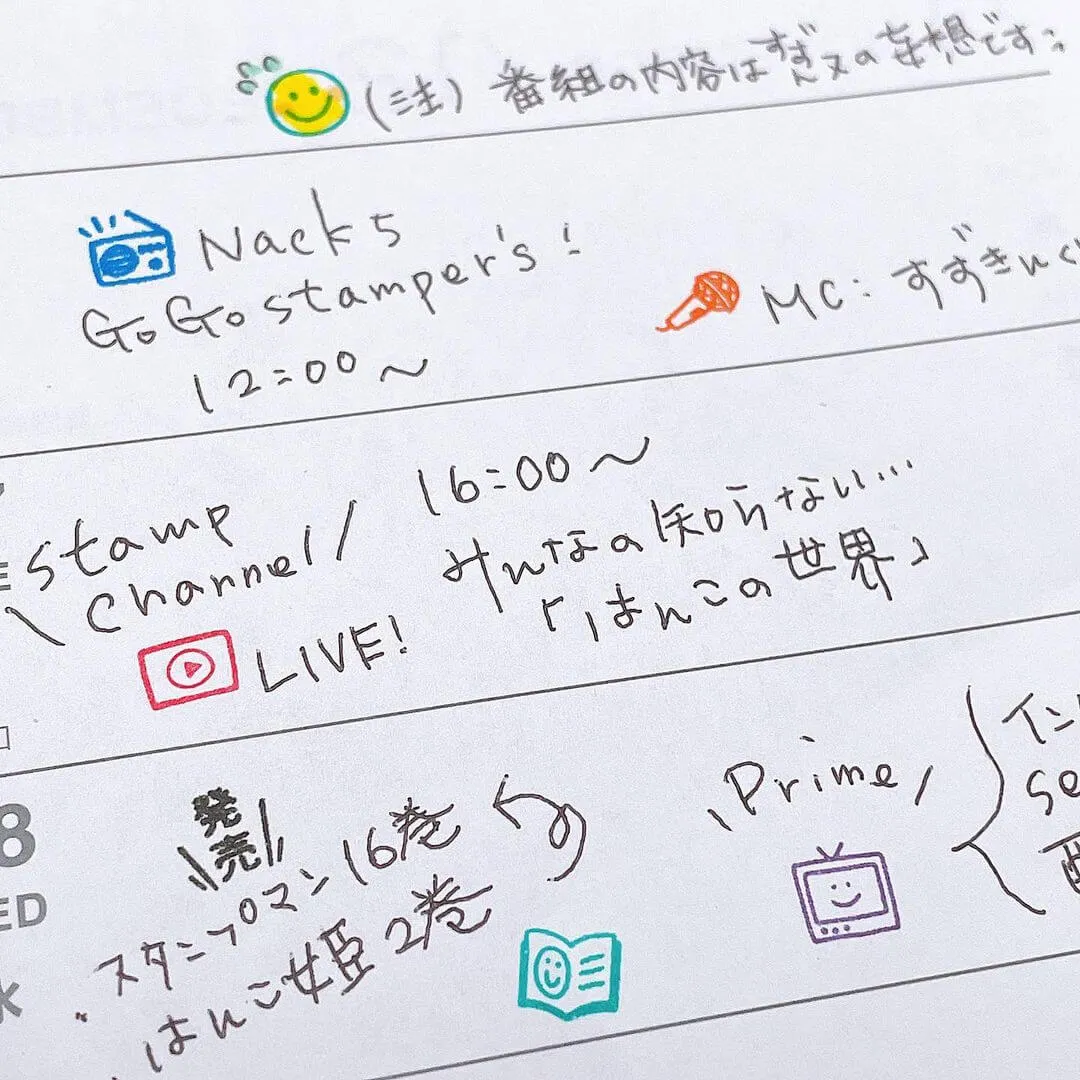 (注) 番組の内容はすずンヌの妄想です。
Nack5
GoGo stamper's!
12:00〜
MC: すずきいぐ
stamp
Channel
LIVE!
16:00〜
みんなの知らない…
「はんこの世界」
8
ED
発売
・スタンプマン 16巻
・はんこ姫 2巻
Prime
イン
se